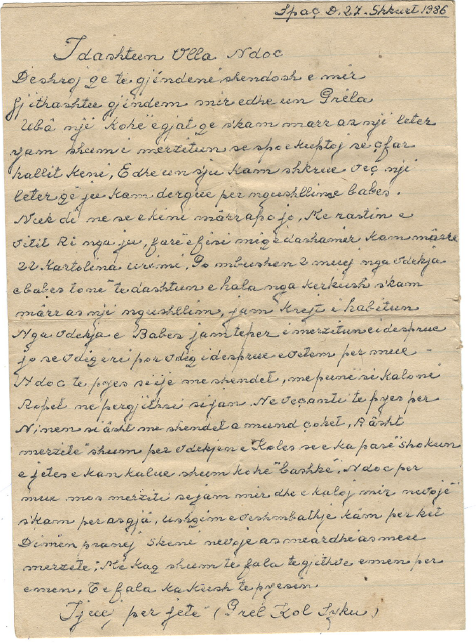 Spaç D. 27. Shkurt 1986
I dashtun Vlla Ndoc
Deshroj qe te gjindeni shendosh e mir
gjithashtu gjindem mir edhe un Prela
U bâ një kohë e gjat qe s'kam marr asnji leter
jam shumë i merzitun se spo e kuptoj se çfar
hallit keni, Edhe un s'ju kam shkrue veç nji
leter që ju kam dergue per ngushllime babes.
Nuk di ne se e keni marr apo jo, Me rastin e
vitit Ri nga ju, farë e fisi miq e dashamir kam marr
22 Kartolina urimi, Po mbushen 2 muej nga vdekja
e babes tonë te dashtun e haba nga kerkush s'kam
marr as nji ngushllim, jam krejt i habitun
Nga vdekja e Babes jam teper i merzitun e i desprue
jo se vdiq i ri por vdiq i desprue e vetem per mue
Ndoc te pyes si je me shendet, me punë si kaloni
Ropet ne pergjithsi si jan Ne veçanti te pyes per
Ninen si âsht me shendet a mund çohet, Râsht
merzitë shum per vdekjen e Koles se e ka pasë shokun
e jetes e kan kalue shum kohë bashkë, Ndoc per
mue mos merziti se jam mir dhe e kaloj mir nevojë
s'kam per asgjâ, ushqim e veshmbathje kam per ket
Dimen prandj s'keni nevojë as me ardhe as me u
merzitë, Me kaq shum te fala te gjithve emen per
emen, Te fala ka kush te pyesin.
Tjue, per jetë (Prel Kol Syku)